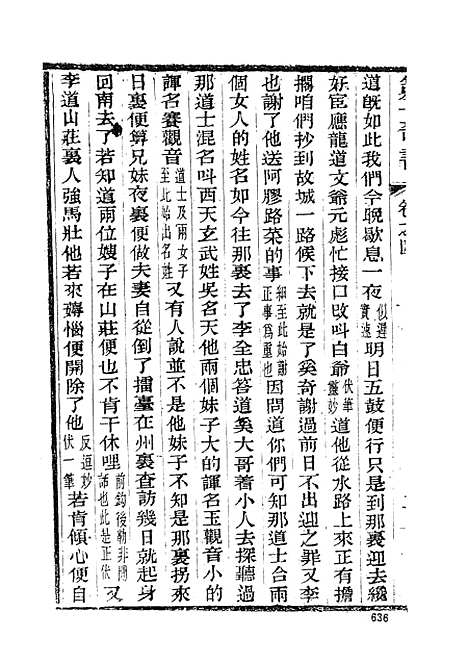 道既如此我們今晚歇息一夜似遲實速明日五鼓便行只是到那裏迎去纔
妖宦應龍道文爺元彪忙接口改呌白爺伏筆靈妙道他從水路上來正有擔
擱咱們抄到故城一路候下去就是了奚奇謝過前日不出迎之罪又李
也謝了他送阿膠路菜的事細至此始謝正事爲重也因問道你們可知那道士台兩
個女人的姓名如今往那裏去了李全忠答道奚大哥著小人去探聽過
那道士混名呌西天玄武姓吳名天他兩個妹子大的諢名玉觀音小的
諢名賽觀音道士及兩女子至此始出名姓又有人說並不是他妹子不知是那裏拐來
日裏便算兄妹夜裏便做夫妻自從倒了擂臺在州裏查訪幾日就起身
回南去了若知道兩位嫂子在山莊便也不肯干休哩前鈎後勒非閒話也此是正伏又
李道山莊裏人強馬壯他若來薅惱便開除了他反逗妙伏一筆若肯傾心便自
636